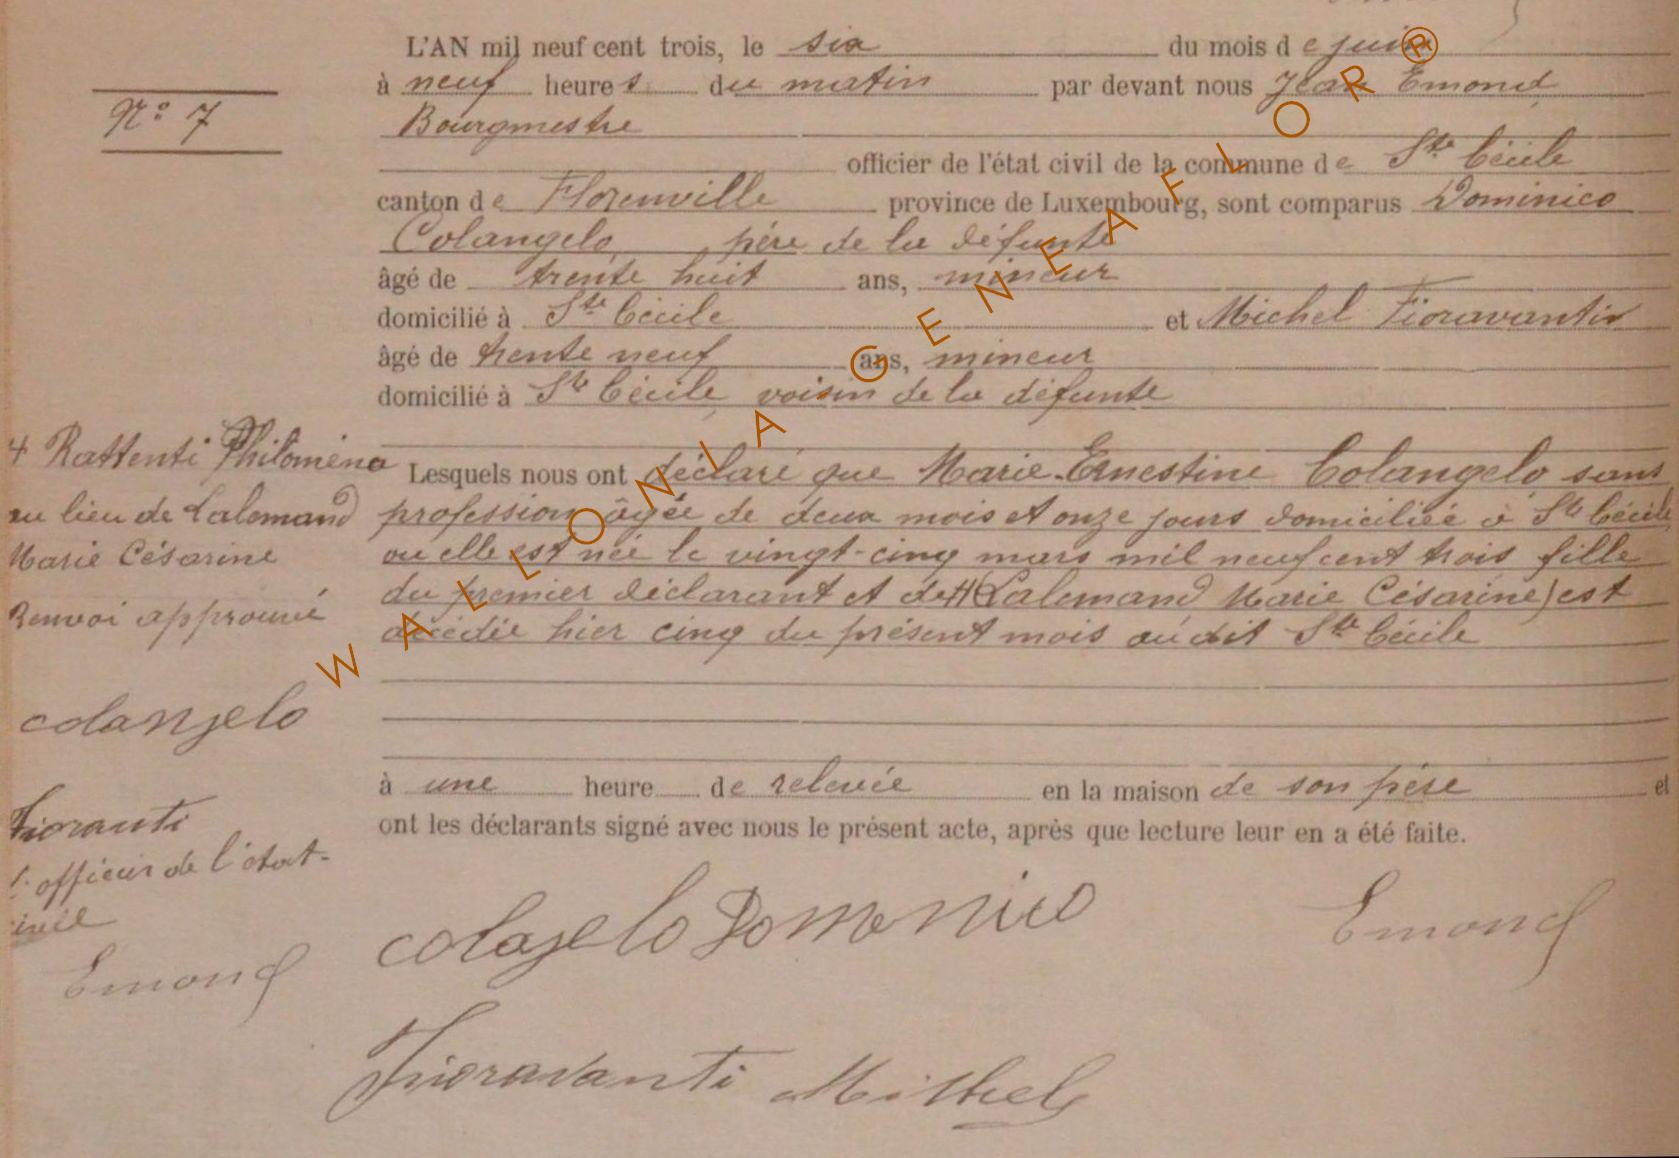 L'AN mil neuf cent trois, le six du mois de juin
à neuf heures du matin par devant nous Jean Emond
Bourgmestre
officier de l'état civil de la commune de Ste Cécile
canton de Florenville province de Luxembourg, sont comparus Dominico
Colangelo, père de la défunte
âgé de trente huit ans, mineur
domicilié à Ste Cécile et Michel Fioravanti
âgé de trente neuf ans, mineur
domicilié à Ste Cécile, voisin de la défunte
Lesquels nous ont déclaré que Marie-Ernestine Colangelo sans
profession âgée de deux mois et onze jours domiciliée à Ste Cécile
ou elle est née le vingt-cinq mars mil neuf cent trois fille
du premier déclarant et de (Lalemand Marie Césarine) est
décédée hier cinq du présent mois audit Ste Cécile
à une heure de relevée en la maison de son père et
ont les déclarants signé avec nous le présent acte, après que lecture leur en a été faite.
Colagelo Domenico
Emond
Fioravanti Michel
N° 7
Rattenti Philomena
au lieu de Lalemand
Marie Césarine
Renvoi approuvé
Colangelo
Fioranti
l'officier de l'état-
civil
Emond
WALLONIA GENEAFLOR®